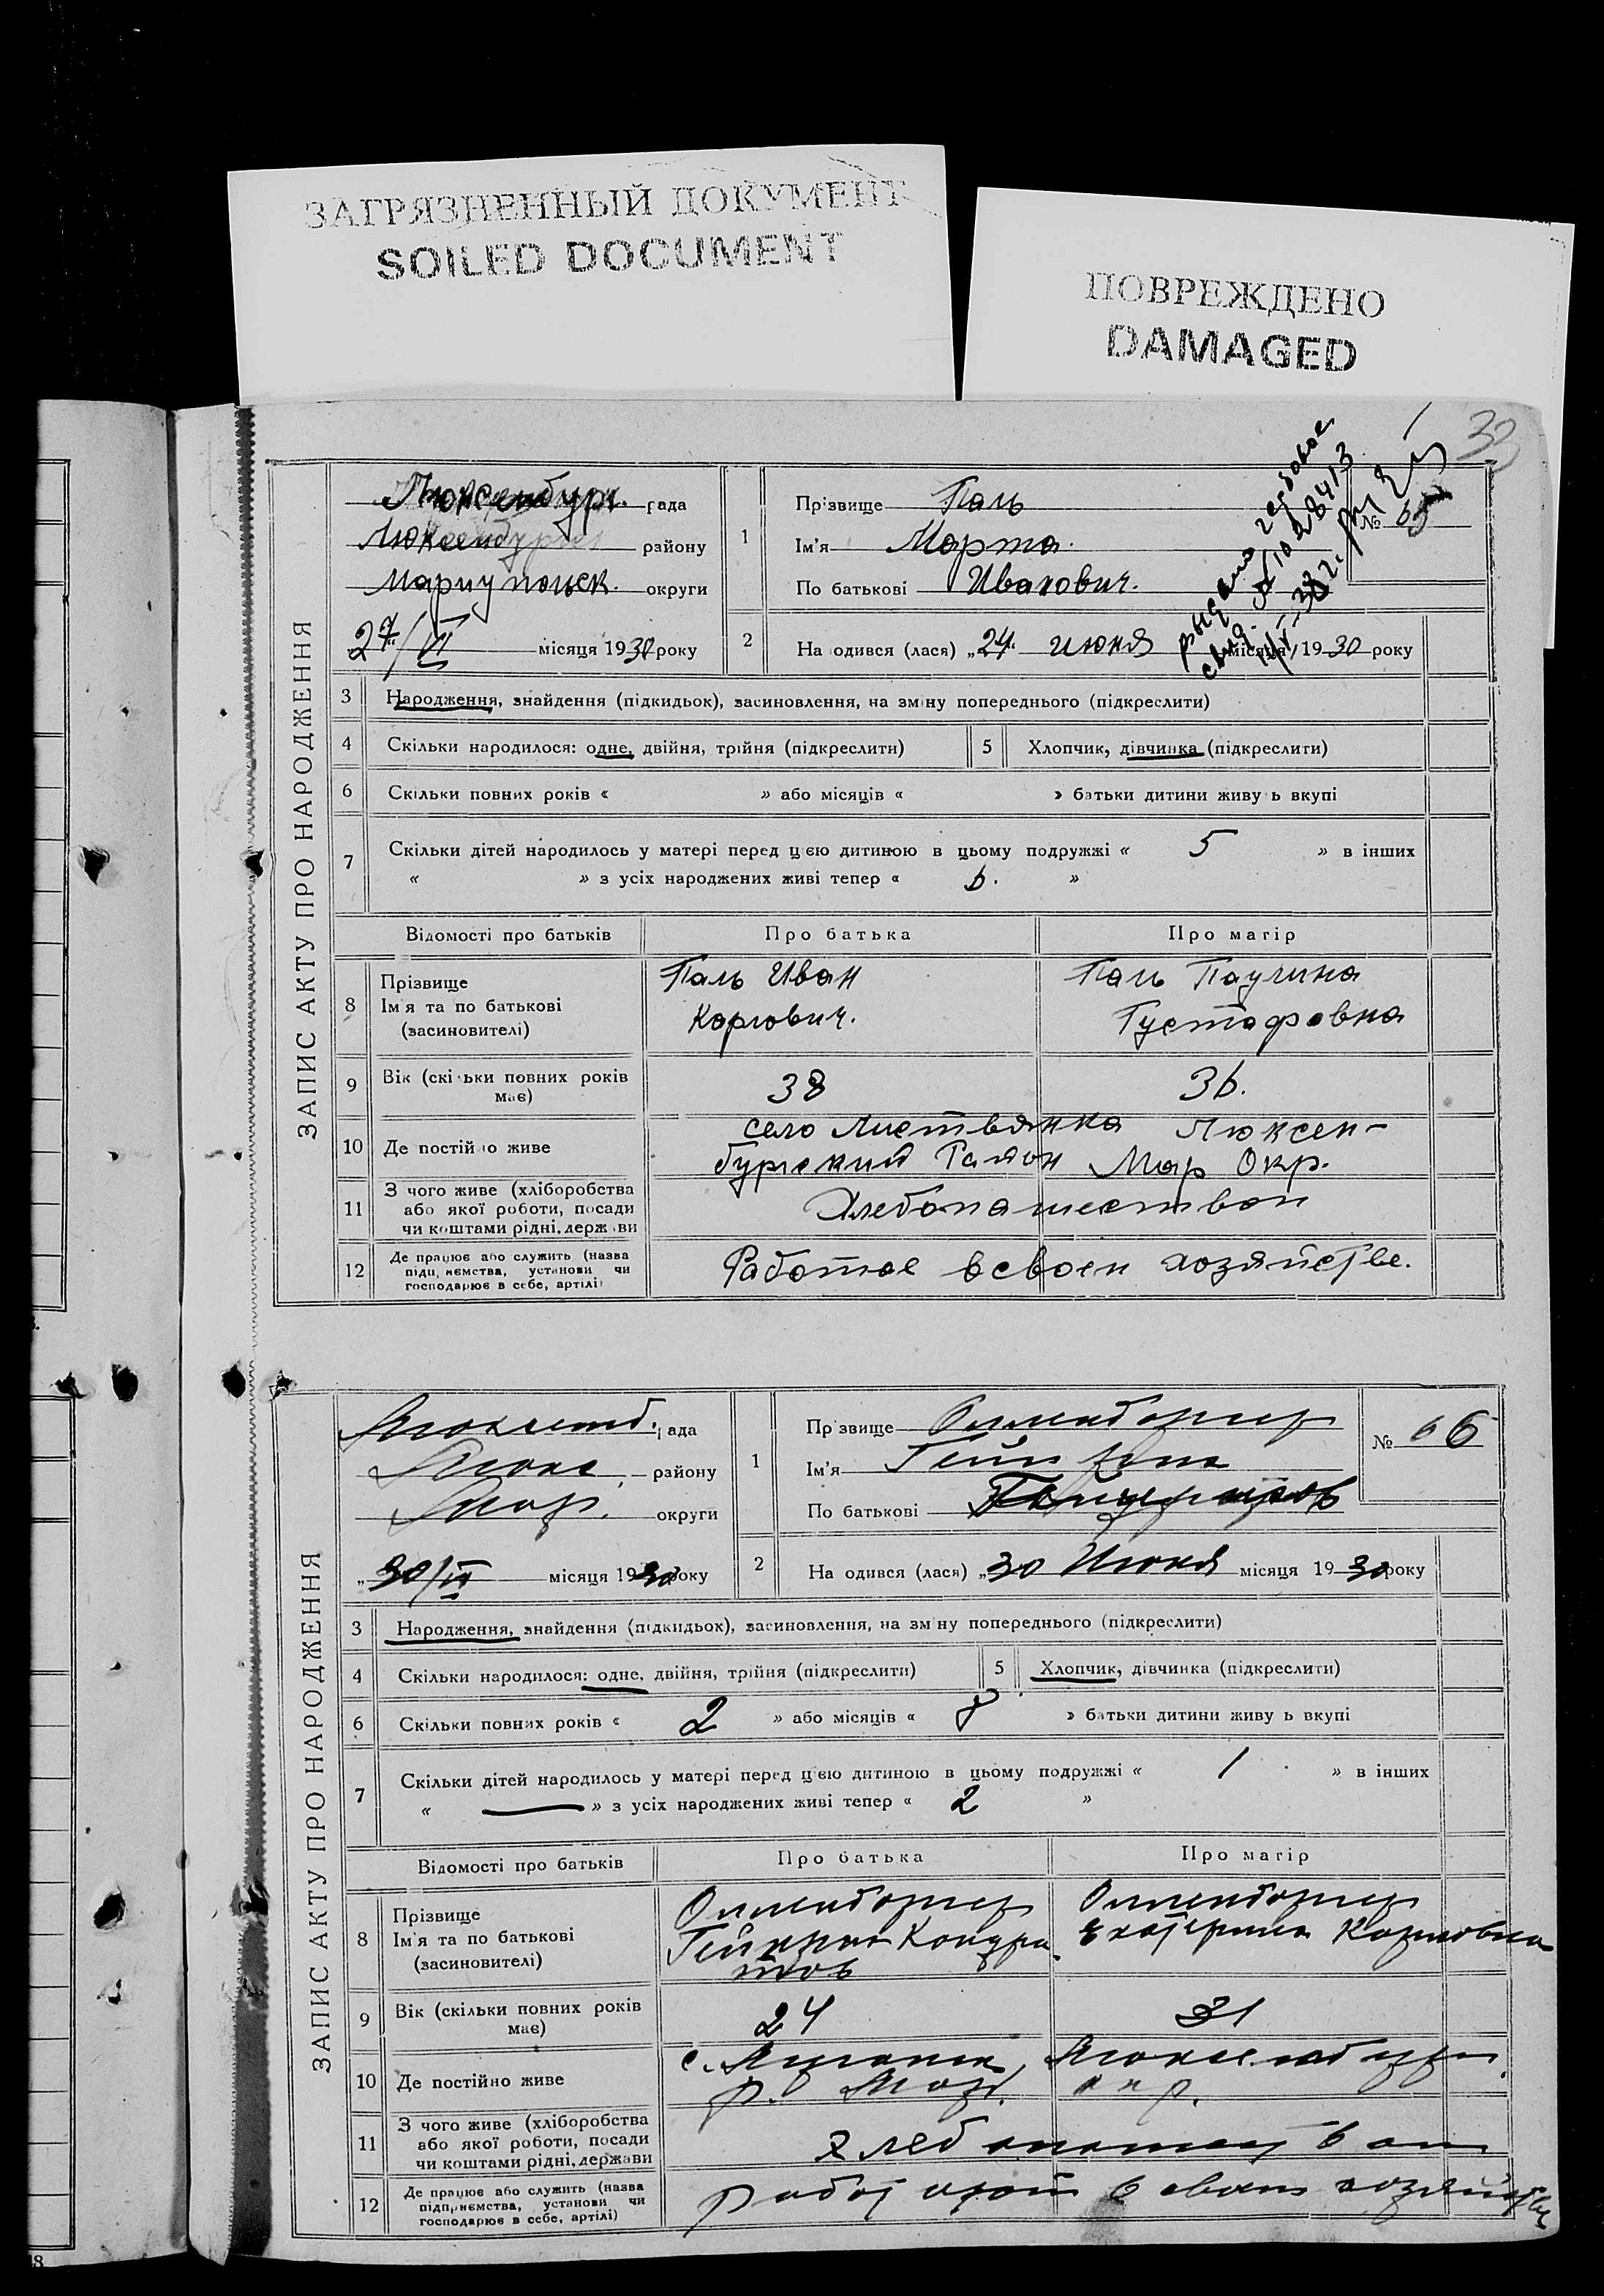 ЗАГРЯЗНЕННЫЙ ДОКУМЕНТ
SOILED DOCUMENT
ПОВРЕЖДЕНО
DAMAGED
33
ЗАПИС АКТУ ПРО НАРОДЖЕННЯ
Люксембург. рада
Люксембург району
Мариупольск. округи
27/VI місяця 1930 року
1
Прізвище Паль
Ім'я Марта.
По батькові Иванович.
№ 65
2
На одився (лася) „24" июня місяця 1930 року
выдано гербовое
свид.
3 Народження, знайдення (підкидьок), засиновлення, на зміну попереднього (підкреслити)
4 Скільки народилося: одне, двійня, трійня (підкреслити) 5 Хлопчик, дівчинка (підкреслити)
6 Скільки повних років « » або місяців « » батьки дитини живу ь вкупі
7 Скільки дітей народилось у матері перед цією дитиною в цьому подружжі « 5 » в інших
« » з усіх народжених живі тепер « 6. »
Відомості про батьків Про батька Про матір
8 Прізвище
Ім'я та по батькові
(засиновителі)
Паль Иван
Карлович.
Паль Паулина
Густафовна
9 Вік (скільки повних років
має)
38 36.
10 Де постійно живе
село Листвянка Люксен-
бургский Район Мар Окр.
11 З чого живе (хліборобства
або якої роботи, посади
чи коштами рідні, держави
Хлебопашеством
12 Де працює або служить (назва
підприємства, установи чи
господарює в себе, артілі)
Работае в своем хозяйстве.
ЗАПИС АКТУ ПРО НАРОДЖЕННЯ
Люксемб. рада
Люкс. району
Мар. округи
„30/VI місяця 1930 року
1
Прізвище
Ім'я
По батькові
№ 66
2
На одився (лася) „30 Июня місяця 1930 року
3 Народження, знайдення (підкидьох), засиновлення, на зміну попереднього (підкреслити)
4 Скільки народилося: одне, двійня, трійня (підкреслити) 5 Хлопчик, дівчинка (підкреслити)
6 Скільки повних років « 2 » або місяців « 8 » батьки дитини живу ь вкупі
7 Скільки дітей народилось у матері перед цією дитиною в цьому подружжі « 1 » в інших
« — » з усіх народжених живі тепер « 2 »
Відомості про батьків Про батька Про матір
8 Прізвище
Ім'я та по батькові
(засиновителі)
Екатерина Карловна
9 Вік (скільки повних років
має)
24 31
10 Де постійно живе
11 З чого живе (хліборобства
або якої роботи, посади
чи коштами рідні, держави
хлебопашеством
12 Де працює або служить (назва
підприємства, установи чи
господарює в себе, артілі)
работают в своем хозяйстве